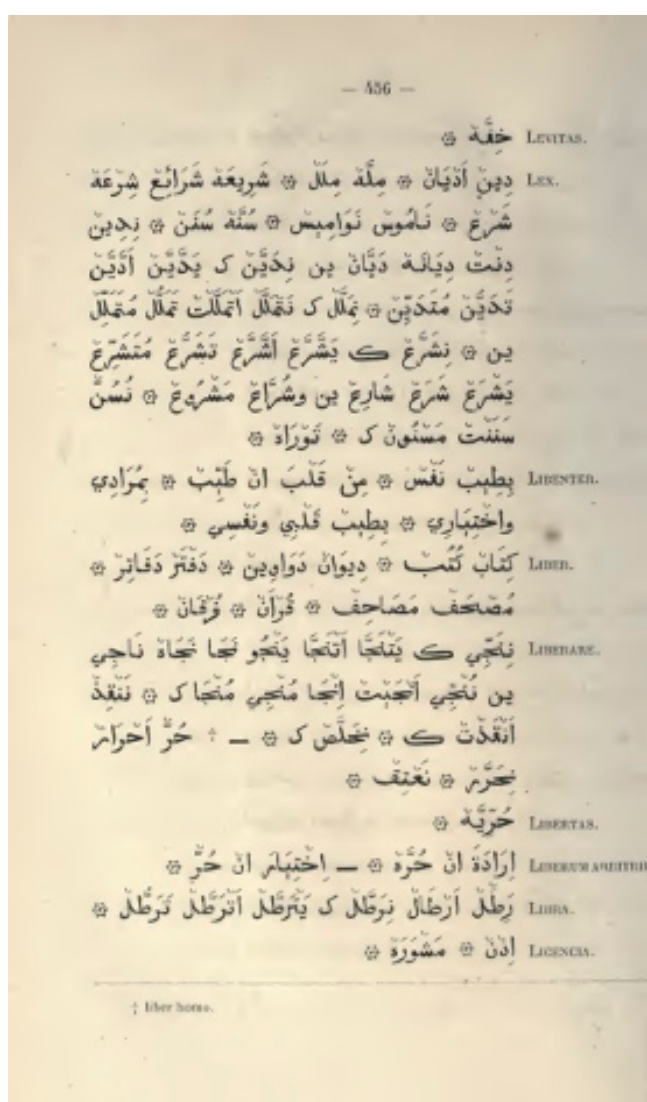 — 456 —
LEVITAS. خِفَّة ۞
LEX. دِين أَدْيَان ۞ مِلَّة مِلَل ۞ شَرِيعَة شَرَائِع شِرْعَة
شَرْع ۞ نَامُوس نَوَامِيس ۞ سُنَّة سُنَن ۞ نِدِين
دِنْت دِيَانَة دَيَّان ين نِدَيَّن ك يَدَّيَّن أَدَّيَّن
تَدَيُّن مُتَدَيِّن ۞ نِمَلَّل ك نَتْمَلَّل اَتْمَلَّلْت تَمَلُّل مُتَمَلِّل
ين ۞ نِشَرَّع ك يَشَّرَّع أَشَّرَّع تَشَرُّع مُتَشَرِّع
يَشْرَع شَرَع شَارِع ين وشُرَّاع مَشْرُوع ۞ نُسُنّ
سَنَنْت مَسْنُون ك ۞ تَوْرَاة ۞
LIBENTER. بِطِيب نَفْس ۞ مِن قَلْبَ ان طَيِّب ۞ بِمُرَادِي
واخْتِيَارِي ۞ بِطِيب قَلْبِي ونَفْسِي ۞
LIBER. كِتَاب كُتُب ۞ دِيوَان دَوَاوِين ۞ دَفْتَر دَفَاتِر ۞
مُصْحَف مَصَاحِف ۞ قُرْآن ۞ فُرْقَان ۞
LIBERARE. نِنَجِّي ك يَتْنَجَّا اَتْنَجَّا يَنْجُو نَجَا نَجَاة نَاجِي
ين نُنْجِي أَنْجَيْت اِنْجَا مُنْجِي مُنْجَا ك ۞ نَنْقِذ
أَنْقَذْت ك ۞ نِخَلَّص ك ۞ — † حُرّ أَحْرَار
نِحَرَّر ۞ نَعْتِق ۞
LIBERTAS. حُرِّيَّة ۞
LIBERUM اِرَادَةَ ان حُرَّة ۞ — اِخْتِيَار ان حُرّ ۞
LIBRA. رَطْل أَرْطَال نِرَطَّل ك يَتْرَطَّل اَتْرَطَّل تَرَطُّل ۞
LICENCIA. اِذْن ۞ مَشْوَرَة ۞
† liber homo.